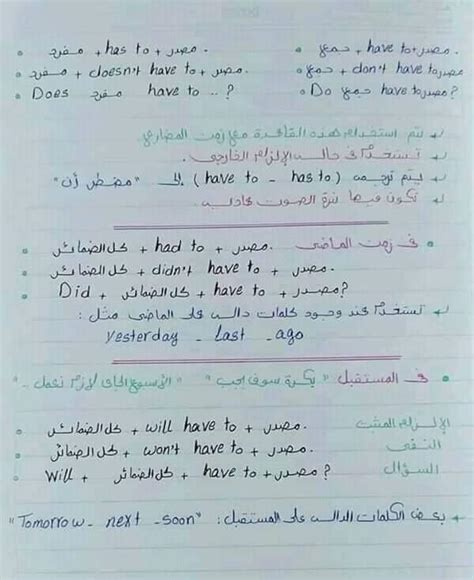 مفرد + has to + مصدر.
جمع + have to + مصدر.
مفرد + doesn't have to + مصدر.
جمع + don't have to مصدر
Does مفرد have to ..?
Do جمع have to مصدر?
يتم استخدام هذه القاعدة مع زمن المضارع
تستخدم في حالة الإلزام الخارجي.
يتم ترجمة (have to - has to) إلى "مضطر أن"
تكون فيها نبرة الصوت عادية.
في زمن الماضي
كل الضمائر + had to + مصدر.
كل الضمائر + didn't have to + مصدر.
Did + كل الضمائر + have to + مصدر?
تستخدم عند وجود كلمات دالة على الماضي مثل:
yesterday - last - ago
في المستقبل "بكرة سوف يجب" "الأسبوع الجاي لازم نعمل .."
الإلزام المثبت كل الضمائر + will have to + مصدر.
النفي كل الضمائر + won't have to + مصدر.
السؤال Will + كل الضمائر + have to + مصدر?
بعض الكلمات الدالة على المستقبل: "Tomorrow - next - soon"